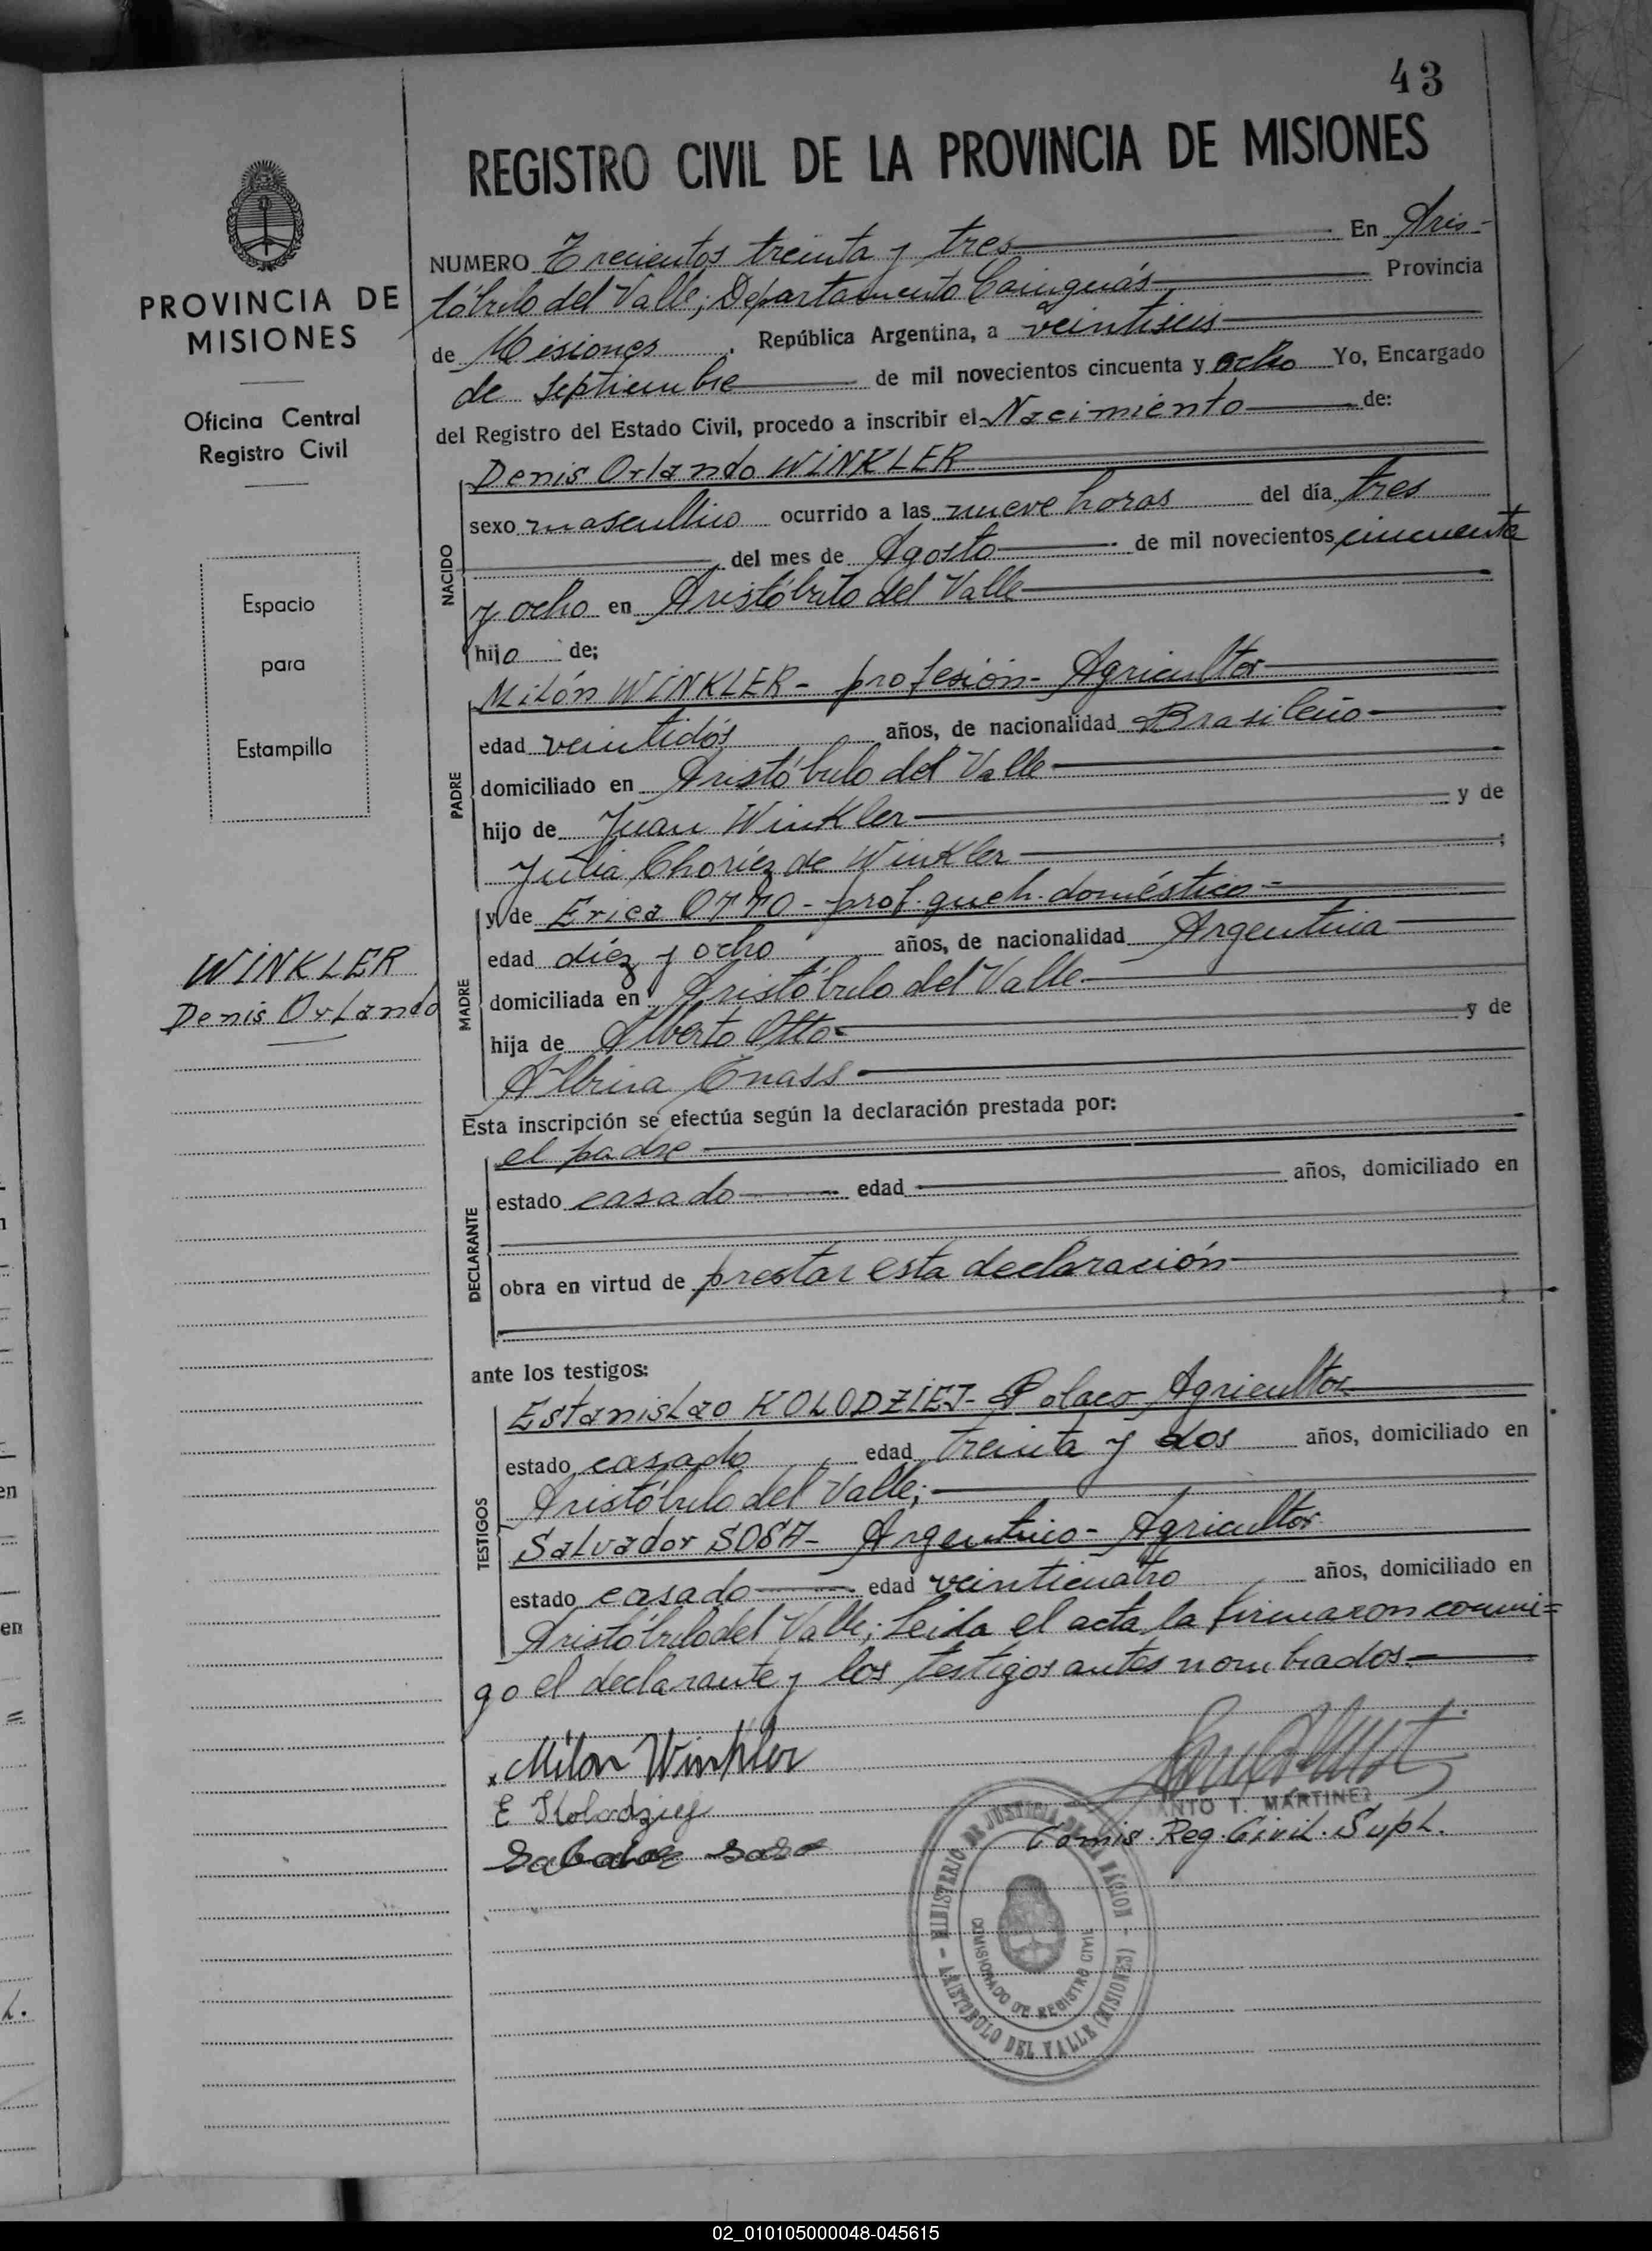 43
REGISTRO CIVIL DE LA PROVINCIA DE MISIONES
PROVINCIA DE
MISIONES
Oficina Central
Registro Civil
Espacio
para
Estampilla
WINKLER
Denis Orlando
NUMERO Trecientos treinta y tres En Aris-
tóbulo del Valle; Departamento Cainguás Provincia
de Misiones, República Argentina, a veintiseis
de septiembre de mil novecientos cincuenta y ocho Yo, Encargado
del Registro del Estado Civil, procedo a inscribir el Nacimiento de:
NACIDO
Denis Orlando WINKLER
sexo masculino ocurrido a las nueve horas del día tres
del mes de Agosto de mil novecientos cincuenta
y ocho en Aristóbulo del Valle
hijo de;
PADRE
Milón WINKLER - profesión - Agricultor
edad veintidós años, de nacionalidad Brasileño
domiciliado en Aristóbulo del Valle
hijo de Juan Winkler y de
Julia Choriez de Winkler ;
MADRE
y de Erica OTTO - prof. queh. doméstico -
edad diéz y ocho años, de nacionalidad Argentina
domiciliada en Aristóbulo del Valle
hija de Alberto Otto y de
Albina
Esta inscripción se efectúa según la declaración prestada por:
DECLARANTE
el padre
estado casado edad años, domiciliado en
obra en virtud de prestar esta declaración
ante los testigos:
TESTIGOS
Estanislao KOLODZIEJ - Polaco Agricultor
estado casado edad treinta y dos años, domiciliado en
Aristóbulo del Valle;
Salvador SOSA - Argentino - Agricultor
estado casado edad veinticuatro años, domiciliado en
Aristóbulo del Valle; Leida el acta la firmaron conmi=
go el declarante y los testigos antes nombrados.
Milon Winkler
E Kolodziej
ANTO T. MARTINEZ
Comis. Reg. Civil. Supl.
MINISTERIO DE JUSTICIA DE LA NACION
COMISIONADO DE REGISTRO CIVIL
ARISTOBULO DEL VALLE (MISIONES)
02_010105000048-045615